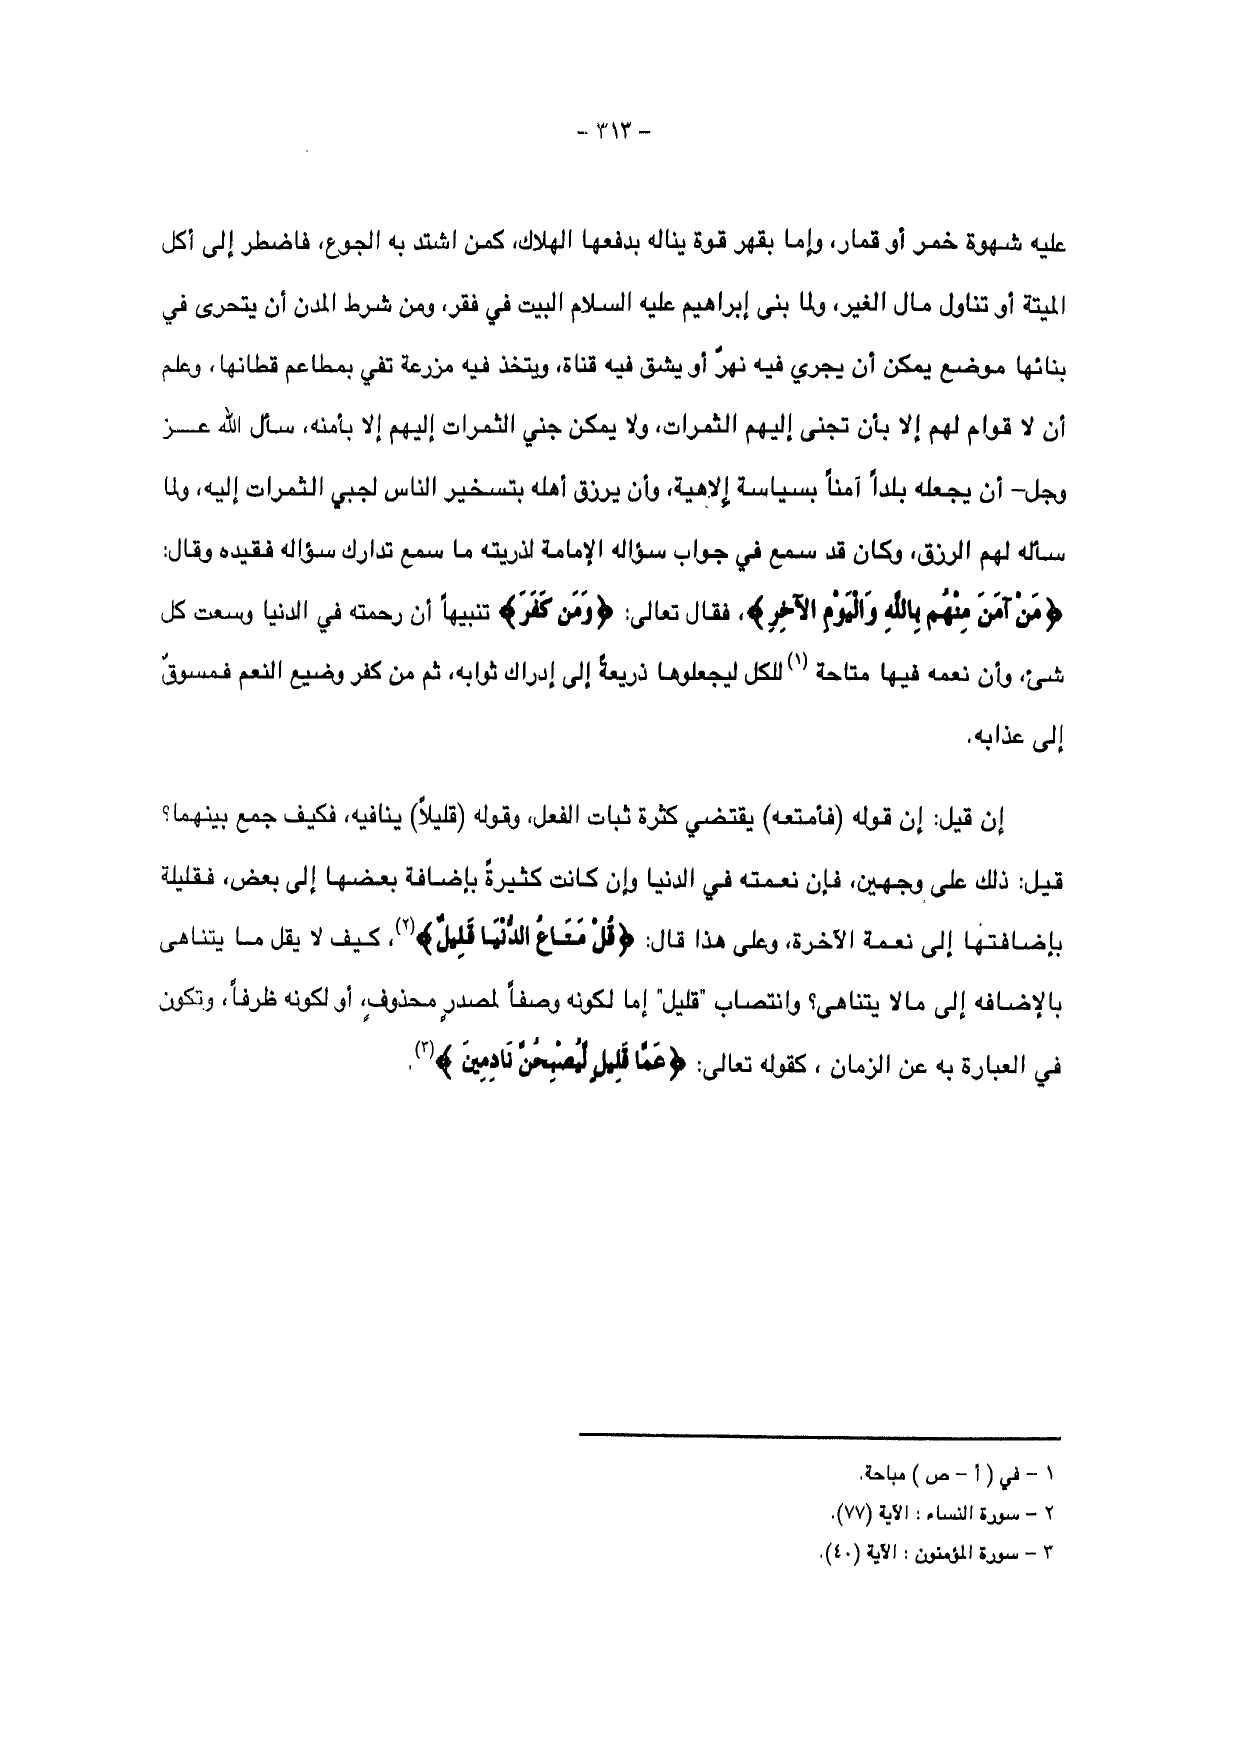 - ٣١٣ -
عليه شهوة خمر أو قمار، وإما بقهر قوة يناله بدفعها الهلاك، كمن اشتد به الجوع، فاضطر إلى أكل
الميتة أو تناول مال الغير، ولما بنى إبراهيم عليه السلام البيت في فقر، ومن شرط المدن أن يتحرى في
بنائها موضع يمكن أن يجري فيه نهرٌ أو يشق فيه قناة، ويتخذ فيه مزرعة تفي بمطاعم قطانها، وعلم
أن لا قوام لهم إلا بأن تجنى إليهم الثمرات، ولا يمكن جني الثمرات إليهم إلا بأمنه، سأل الله عـــز
وجل- أن يجعله بلداً آمناً بسياسة إلاهية، وأن يرزق أهله بتسخير الناس لجبي الثمرات إليه، ولما
سأله لهم الرزق، وكان قد سمع في جواب سؤاله الإمامة لذريته ما سمع تدارك سؤاله فقيده وقال:
﴿مَنْ آمَنَ مِنْهُم بِاللَّهِ وَالْيَوْمِ الآخِرِ﴾، فقال تعالى: ﴿وَمَن كَفَرَ﴾ تنبيهاً أن رحمته في الدنيا وسعت كل
شئ، وأن نعمه فيها متاحة (١) للكل ليجعلوها ذريعةً إلى إدراك ثوابه، ثم من كفر وضيع النعم فمسوقٌ
إلى عذابه.
إن قيل: إن قوله (فأمتعه) يقتضي كثرة ثبات الفعل، وقوله (قليلاً) ينافيه، فكيف جمع بينهما؟
قيل: ذلك على وجهين، فإن نعمته في الدنيا وإن كانت كثيرةً بإضافة بعضها إلى بعض، فقليلة
بإضافتها إلى نعمة الآخرة، وعلى هذا قال: ﴿قُلْ مَتَاعُ الدُّنْيَا قَلِيلٌ﴾(٢)، كيف لا يقل ما يتناهى
بالإضافه إلى مالا يتناهى؟ وانتصاب "قليل" إما لكونه وصفاً لمصدرٍ محذوفٍ، أو لكونه ظرفاً، وتكون
في العبارة به عن الزمان ، كقوله تعالى: ﴿عَمَّا قَلِيلٍ لَيُصْبِحُنَّ نَادِمِينَ ﴾(٣).
١ - في ( أ - ص ) مباحة.
٢ - سورة النساء : الآية (٧٧).
٣ - سورة المؤمنون : الآية (٤٠).